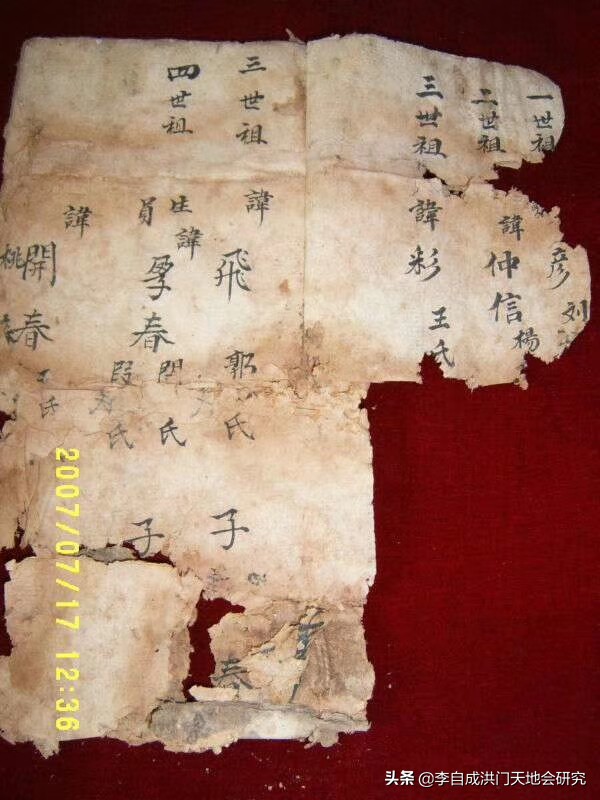 一世祖
彦
刘
二世祖
諱仲信
楊
三世祖
諱彩
王氏
三世祖
諱飛
郭氏
子
春
四世祖
生員
諱孕春
門氏
段氏
子
諱開春
氏
桃
2007/07/17 12:36
头条 @李自成洪门天地会研究